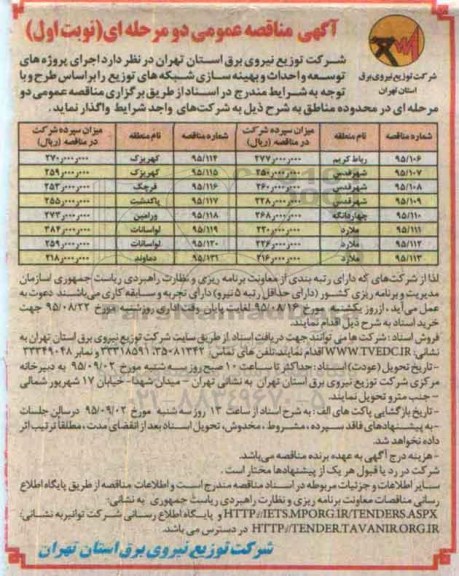 آگهی مناقصه عمومی دو مرحله ای(نوبت اول)
شرکت توزیع نیروی برق
استان تهران
شرکت توزیع نیروی برق استان تهران در نظر دارد اجرای پروژه های
توسعه و احداث و بهینه سازی شبکه های توزیع را براساس طرح و با
توجه به شرایط مندرج در اسناد از طریق برگزاری مناقصه عمومی دو
مرحله ای در محدوده مناطق به شرح ذیل به شرکت‌های واجد شرایط واگذار نماید.
شماره مناقصه نام منطقه میزان سپرده شرکت در مناقصه (ریال) شماره مناقصه نام منطقه میزان سپرده شرکت در مناقصه (ریال)
۹۵/۱۰۶ رباط کریم ۲۷۷٫۰۰۰٫۰۰۰ ۹۵/۱۱۴ کهریزک ۲۷۰٫۰۰۰٫۰۰۰
۹۵/۱۰۷ شهرقدس ۲۵۰٫۰۰۰٫۰۰۰ ۹۵/۱۱۵ کهریزک ۲۵۹٫۰۰۰٫۰۰۰
۹۵/۱۰۸ شهرقدس ۲۶۰٫۰۰۰٫۰۰۰ ۹۵/۱۱۶ قرچک ۲۵۳٫۰۰۰٫۰۰۰
۹۵/۱۰۹ شهرقدس ۲۲۸٫۰۰۰٫۰۰۰ ۹۵/۱۱۷ پاکدشت ۲۵۵٫۰۰۰٫۰۰۰
۹۵/۱۱۰ چهاردانگه ۲۶۸٫۰۰۰٫۰۰۰ ۹۵/۱۱۸ ورامین ۲۷۳٫۰۰۰٫۰۰۰
۹۵/۱۱۱ ملارد ۲۲۰٫۰۰۰٫۰۰۰ ۹۵/۱۱۹ لواسانات ۳۸۴٫۰۰۰٫۰۰۰
۹۵/۱۱۲ ملارد ۲۲۶٫۰۰۰٫۰۰۰ ۹۵/۱۲۰ لواسانات ۲۵۹٫۰۰۰٫۰۰۰
۹۵/۱۱۳ ملارد ۲۱۶٫۰۰۰٫۰۰۰ ۹۵/۱۲۱ دماوند ۲۱۸٫۰۰۰٫۰۰۰
لذا از شرکت‌های که دارای رتبه بندی از معاونت برنامه ریزی و نظارت راهبردی ریاست جمهوری (سازمان
مدیریت و برنامه ریزی کشور (دارای حداقل رتبه ۵ نیرو) دارای تجربه و سابقه کاری می‌باشند دعوت به
عمل می‌آید ، از روز یکشنبه مورخ ۹۵/۰۸/۱۶ لغایت پایان وقت اداری روزشنبه مورخ ۹۵/۰۸/۲۲ جهت
خرید اسناد به شرح ذیل اقدام نمایند.
فروش اسناد : شرکت ها می توانند جهت دریافت اسناد از طریق سایت شرکت توزیع نیروی برق استان تهران به
نشانی: WWW.TVEDC.IR اقدام نمایند.تلفن های تماس: ۳۵۰۸۱۳۴۲-۳۳۳۱۸۵۹۱ و نمابر ۳۳۳۴۹۰۴۸
- تاریخ تحویل (عودت) اسناد : حداکثر تا ساعت ۱۰ صبح روز سه شنبه مورخ ۹۵/۰۹/۰۲ به دبیرخانه
مرکزی شرکت توزیع نیروی برق استان تهران به نشانی تهران - میدان شهدا - خیابان ۱۷ شهریور شمالی
- جنب مترو تحویل نمایند.
- تاریخ بازگشایی پاکت های الف : به شرح اسناد از ساعت ۱۳ روز سه شنبه مورخ ۹۵/۰۹/۰۲ درسالن جلسات
- به پیشنهادهای فاقد سپرده ، مشروط ، مخدوش، تحویل اسناد بعد از انقضای مدت ، مطلقا ترتیب اثر
داده نخواهد شد.
- هزینه درج آگهی به عهده برنده مناقصه می‌باشد.
شرکت در رد یا قبول هر یک از پیشنهادها مختار است .
سایر اطلاعات و جزئیات مربوطه در اسناد مناقصه مندرج است و اطلاعات مناقصه از طریق پایگاه اطلاع
رسانی مناقصات معاونت برنامه ریزی و نظارت راهبردی ریاست جمهوری به نشانی:
HTTP://IETS.MPORG.IR/TENDERS.ASPX و پایگاه اطلاع رسانی شرکت توانیر به نشانی:
HTTP://TENDER.TAVANIR.ORG.IR در دسترس می باشد.
شرکت توزیع نیروی برق استان تهران
۰۲۱-۸۸۳۴۹۶۷۰-۵